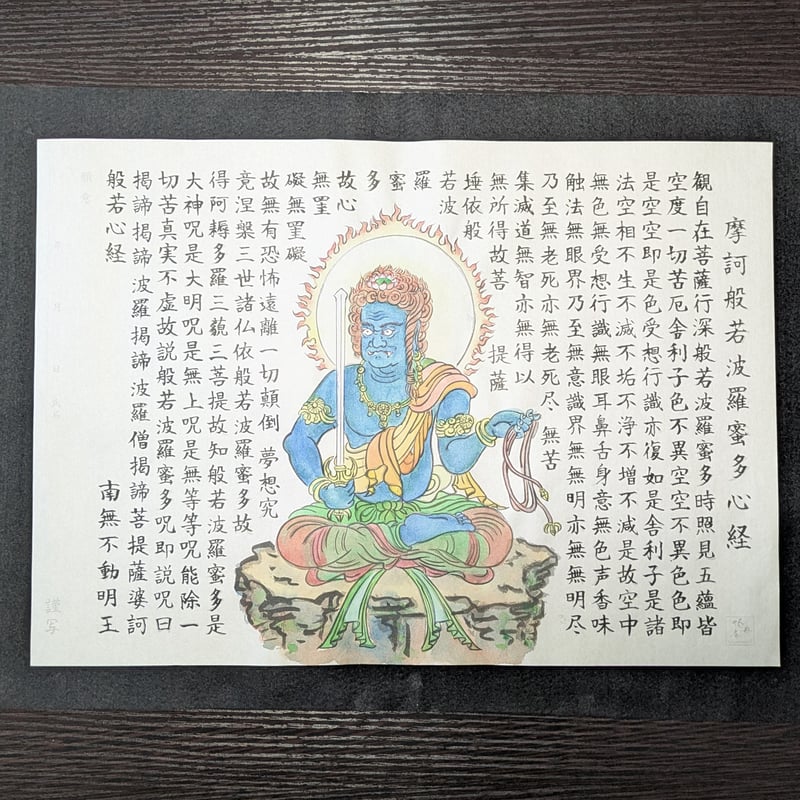 摩訶般若波羅蜜多心経
観自在菩薩行深般若波羅蜜多時照見五蘊皆
空度一切苦厄舎利子色不異空空不異色色即
是空空即是色受想行識亦復如是舎利子是諸
法空相不生不滅不垢不浄不増不減是故空中
無色無受想行識無眼耳鼻舌身意無色声香味
触法無眼界乃至無意識界無無明亦無無明尽
乃至無老死亦無老死尽 無苦
集滅道無智亦無得以
無所得故菩 提薩
埵依般
若波
羅
蜜
多
故心
無罣
礙無罣礙
故無有恐怖遠離一切顛倒 夢想究
竟涅槃三世諸仏依般若波羅蜜多故
得阿耨多羅三藐三菩提故知般若波羅蜜多是
大神呪是大明呪是無上呪是無等等呪能除一
切苦真実不虚故説般若波羅蜜多呪即説呪曰
掲諦掲諦 波羅掲諦 波羅僧掲諦 菩提薩婆訶
般若心経 南無不動明王
年 月 日
謹写